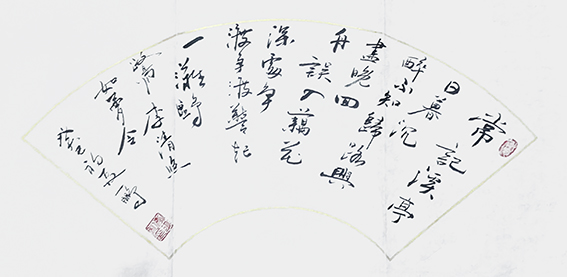 常記溪亭
日暮沉
醉不知歸路興
盡晚回
舟誤入藕花
深處爭
渡爭渡驚起
一灘鷗
鷺李清照
如夢令